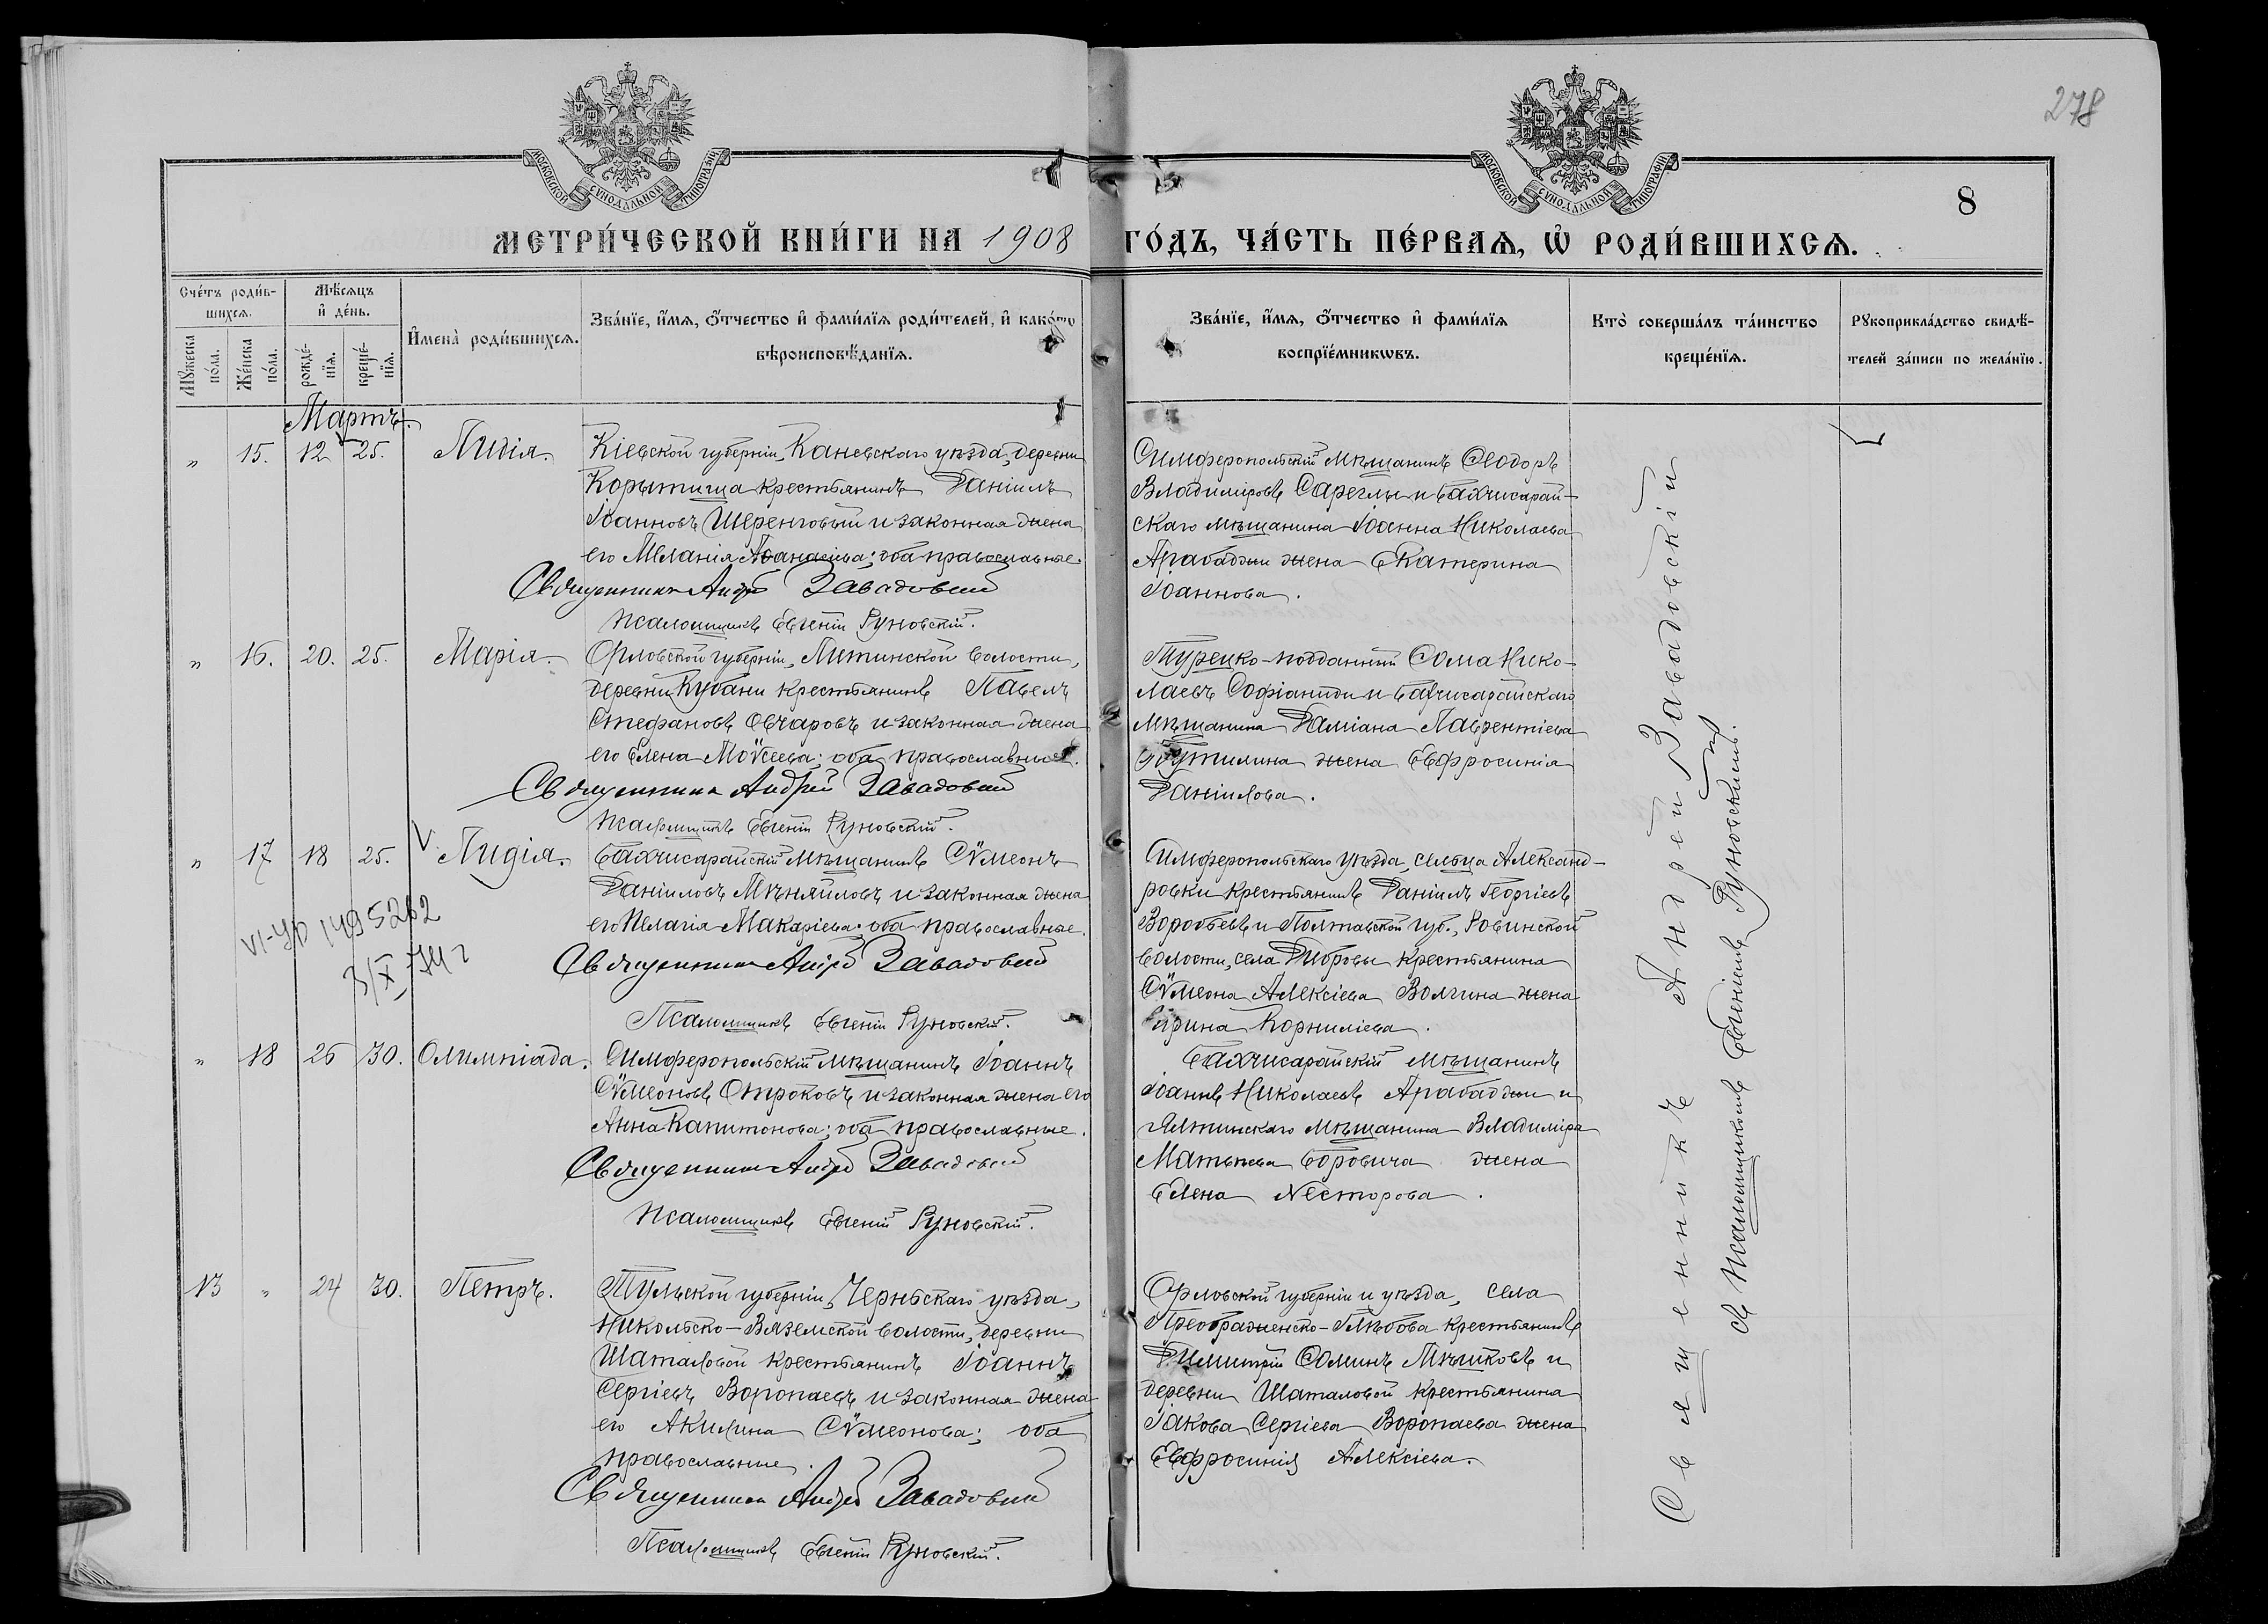 278
МОСКОВСКОЙ СѴНОДАЛЬНОЙ ТИПОГРАФІИ
МОСКОВСКОЙ СѴНОДАЛЬНОЙ ТИПОГРАФІИ
8
МЕТРИ́ЧЕСКОЙ КНИ́ГИ НА 1908 ГО́ДЪ, ЧА́СТЬ ПЕ́РВАѦ, Ѡ҆ РОДИ́ВШИХСѦ.
Сче́тъ роди́в-
шихсѧ.
Мѣ́сѧцъ
и҆ де́нь.
Мꙋ́жеска по́ла.
Же́нска по́ла.
рожде́-нїѧ.
креще́-нїѧ.
И҆мена̀ роди́вшихсѧ.
Зва́нїе, и҆́мѧ, ѻ҆́тчество и҆ фами́лїѧ роди́телей, и҆ како́гѡ
вѣроисповѣ́данїѧ.
Зва́нїе, и҆́мѧ, ѻ҆́тчество и҆ фами́лїѧ
воспрїе́мникѡвъ.
Кто̀ соверша́лъ та́инство
креще́нїѧ.
Рꙋкоприкла́дство свидѣ́-
телей за́писи по жела́нїю.
Мартъ.
„ 15. 12 25. Лидія.
Кіевской губерніи, Каневскаго уѣзда, деревни
Корытища крестьянинъ Даніилъ
Іоанновъ Шеренговый и законная жена
его Меланія Аѳанасіева; оба православные.
Священникъ Андрей Завадовский
Псаломщикъ Евгеній Руновскій.
Симферопольскій мѣщанинъ Ѳеодоръ
Владиміровъ Сареглы и Бахчисарай-
скаго мѣщанина Іоанна Николаева
Арабаджи жена Екатерина
Іоаннова.
„ 16. 20. 25. Марія.
Орловской губерніи, Литинской волости,
деревни Кубани крестьянинъ Павелъ
Стефановъ Овчаровъ и законная жена
его Елена Моѵсеева; оба православные.
Священникъ Андрей Завадовский
Псаломщикъ Евгеній Руновскій.
Турецко-подданный Ѳома Нико-
лаевъ Софіаниди и Бахчисарайскаго
мѣщанина Даміана Лаврентіева
Бутилина жена Евфросинія
Даніилова.
„ 17 18 25. V Лидія.
Бахчисарайскій мѣщанинъ Сѵмеонъ
Данииловъ Мѣняйловъ и законная жена
его Пелагія Макаріева; оба православные.
Священникъ Андрей Завадовский
Псаломщикъ Евгеній Руновскій.
VI-УР 1495262
3/X-74 г
Симферопольскаго уѣзда, сельца Александ-
ровки крестьянинъ Даніилъ Георгіевъ
Воробьевъ и Полтавской губ., Ровинской
волости, села Дибровы крестьянина
Сѵмеона Алексіева Волчина жена
Ирина Корниліева.
„ 18 26 30. Олимпіада.
Симферопольскій мѣщанинъ Іоаннъ
Сѵмеоновъ Отроковъ и законная жена его
Анна Капитонова; оба православные.
Священникъ Андрей Завадовский
Псаломщикъ Евгеній Руновскій.
Бахчисарайскій мѣщанинъ
Іоаннъ Николаевъ Арабаджи и
Ялтинскаго мѣщанина Владиміра
Матѳеева Боровича жена
Елена Несторова.
13 „ 24 30. Петръ.
Тульской губерніи, Чернскаго уѣзда,
Никольско-Вяземской волости, деревни
Шаталовой крестьянинъ Іоаннъ
Сергіевъ Воропаевъ и законная жена
его Акилина Сѵмеонова; оба
православные.
Священникъ Андрей Завадовский
Псаломщикъ Евгеній Руновскій.
Орловской губерніи и уѣзда, села
Преображенско-Глѣбова крестьянинъ
Димитрій Ѳоминъ Мѣшковъ и
деревни Шаталовой крестьянина
Іакова Сергіева Воропаева жена
Евфросинія Алексіева.
Священникъ Андрей Завадовскій
съ Псаломщикомъ Евгеніемъ Руновскимъ.